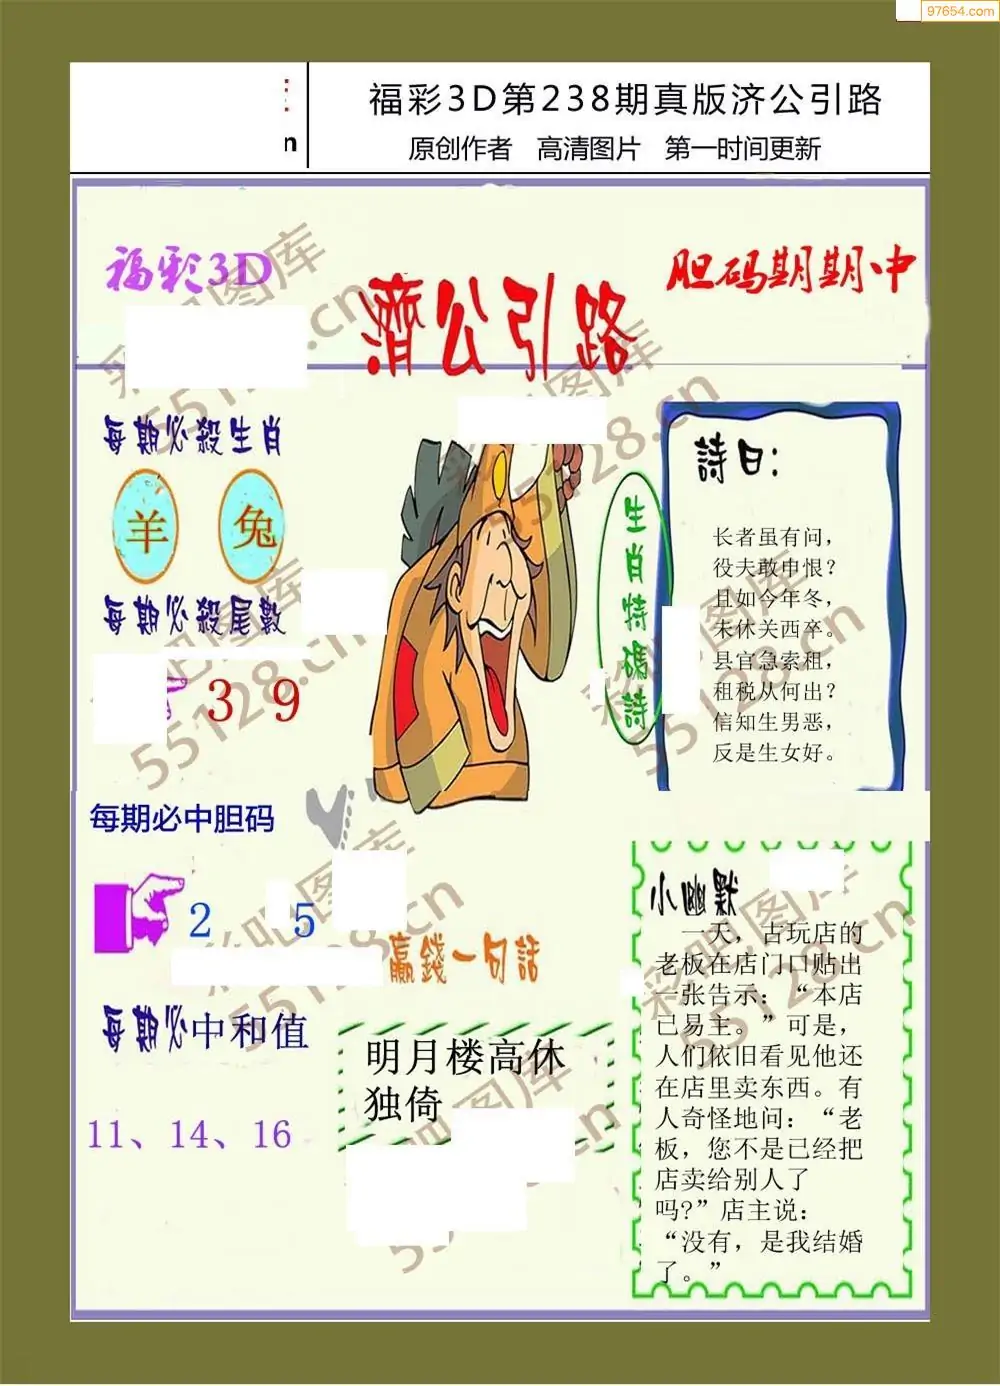 97654.com
n
福彩3D第238期真版济公引路
原创作者 高清图片 第一时间更新
福彩3D
濟公引路
胆码期期中
每期必殺生肖
羊 兔
每期必殺尾數
3 9
每期必中胆码
2 5
每期必中和值
11、14、16
生肖特碼詩
詩曰：
长者虽有问，
役夫敢申恨？
且如今年冬，
未休关西卒。
县官急索租，
租税从何出？
信知生男恶，
反是生女好。
贏錢一句話
明月楼高休
独倚
小幽默
一天，古玩店的
老板在店门口贴出
一张告示：“本店
已易主。”可是，
人们依旧看见他还
在店里卖东西。有
人奇怪地问：“老
板，您不是已经把
店卖给别人了
吗?”店主说：
“没有，是我结婚
了。”
彩吧图库
55128.cn